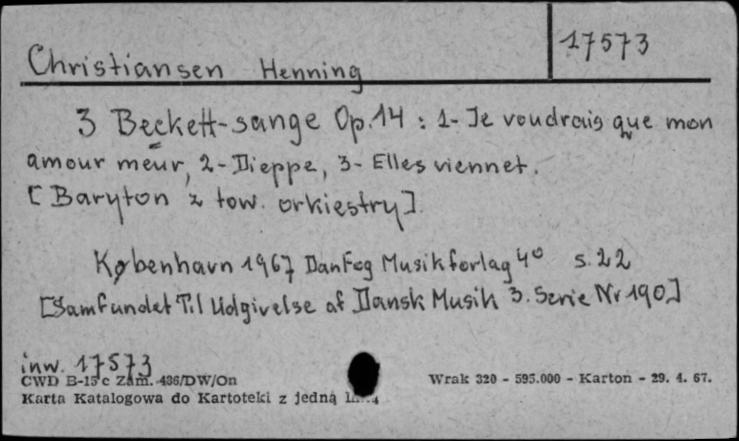 17573
Christiansen Henning
3 Beckett-sange Op.14 : 1- Je voudrais que mon
amour meur, 2- Dieppe, 3- Elles viennet.
[Baryton z tow. orkiestry].
København 1967 Danfog Musikforlag 4° s. 22
[Samfundet Til Udgivelse af Dansk Musik 3. Serie Nr 190]
inw. 17573
CWD B-15 c Zam. 436/DW/On
Wrak 320 - 595.000 - Karton - 29. 4. 67.
Karta Katalogowa do Kartoteki z jedną